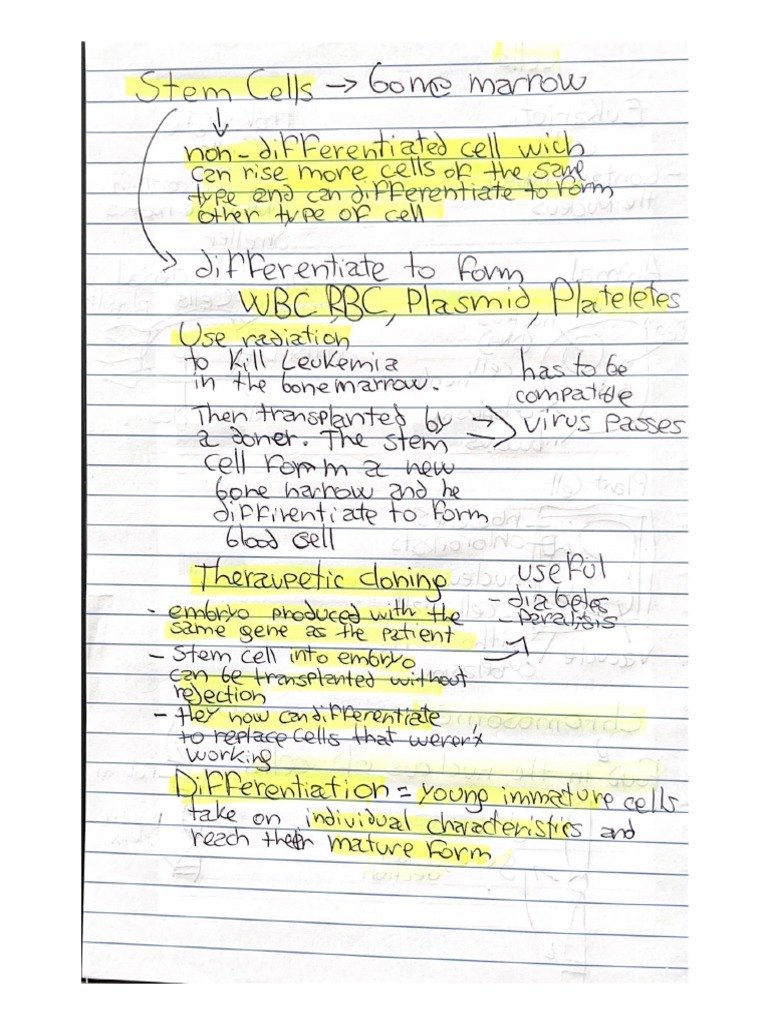 Stem Cells → bone marrow
non-differentiated cell wich
can rise more cells of the same
type and can differentiate to form
other type of cell
differentiate to form
WBC, RBC, Plasmid, Plateletes
Use radiation
to kill Leukemia
in the bone marrow.
Then transplanted by
a doner. The stem
cell form a new
bone harrow and he
diffirentiate to form
blood cell
has to be
compatible
virus passes
Theraupetic cloning
- embryo produced with the
same gene as the patient
- Stem cell into embryo
can be transplanted without
rejection
- they now can differentiate
to replace cells that weren't
working
useful
- diabetes
- paralisis
Differentiation = young immature cells
take on individual characteristics and
reach their mature form